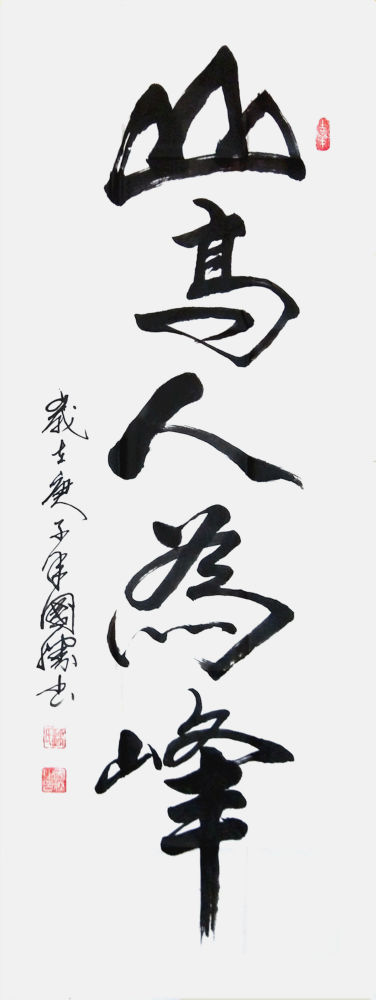 山高人為峰
歲在庚子年國勝書